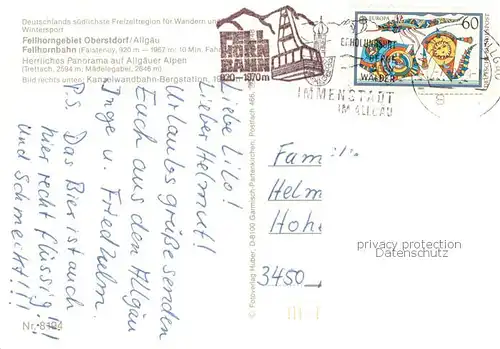 Deutschlands südlichste Freizeitregion für Wandern und
Wintersport
Fellhorngebiet Oberstdorf/Allgäu
Fellhornbahn (Faistenoy, 920 m — 1967 m: 10 Min. Fahr
Herrliches Panorama auf Allgäuer Alpen
(Trettach, 2594 m, Mädelegabel, 2646 m)
Bild rechts unten: Kanzelwandbahn-Bergstation, 19
FELL
HORN
BAHN
920-1970m
ERHOLUNGSORT
BERGE
WÄLDER
IMMENSTADT
IM ALLGÄU
EUROPA
60
DEUTSCHE BUNDESPOST
Liebe Lilo!
Lieber Helmut!
Urlaubsgrüße senden
Euch aus dem Allgäu
Inge u. Friedhelm.
P.S. Das Bier ist auch
hier recht flüssig!!!
Und schmeckt!!!
© Fotoverlag Huber, D-8100 Garmisch-Partenkirchen, Postfach 466,
Fam
Helm
Hoh
3450
privacy protection
Datenschutz
Nr. 8194